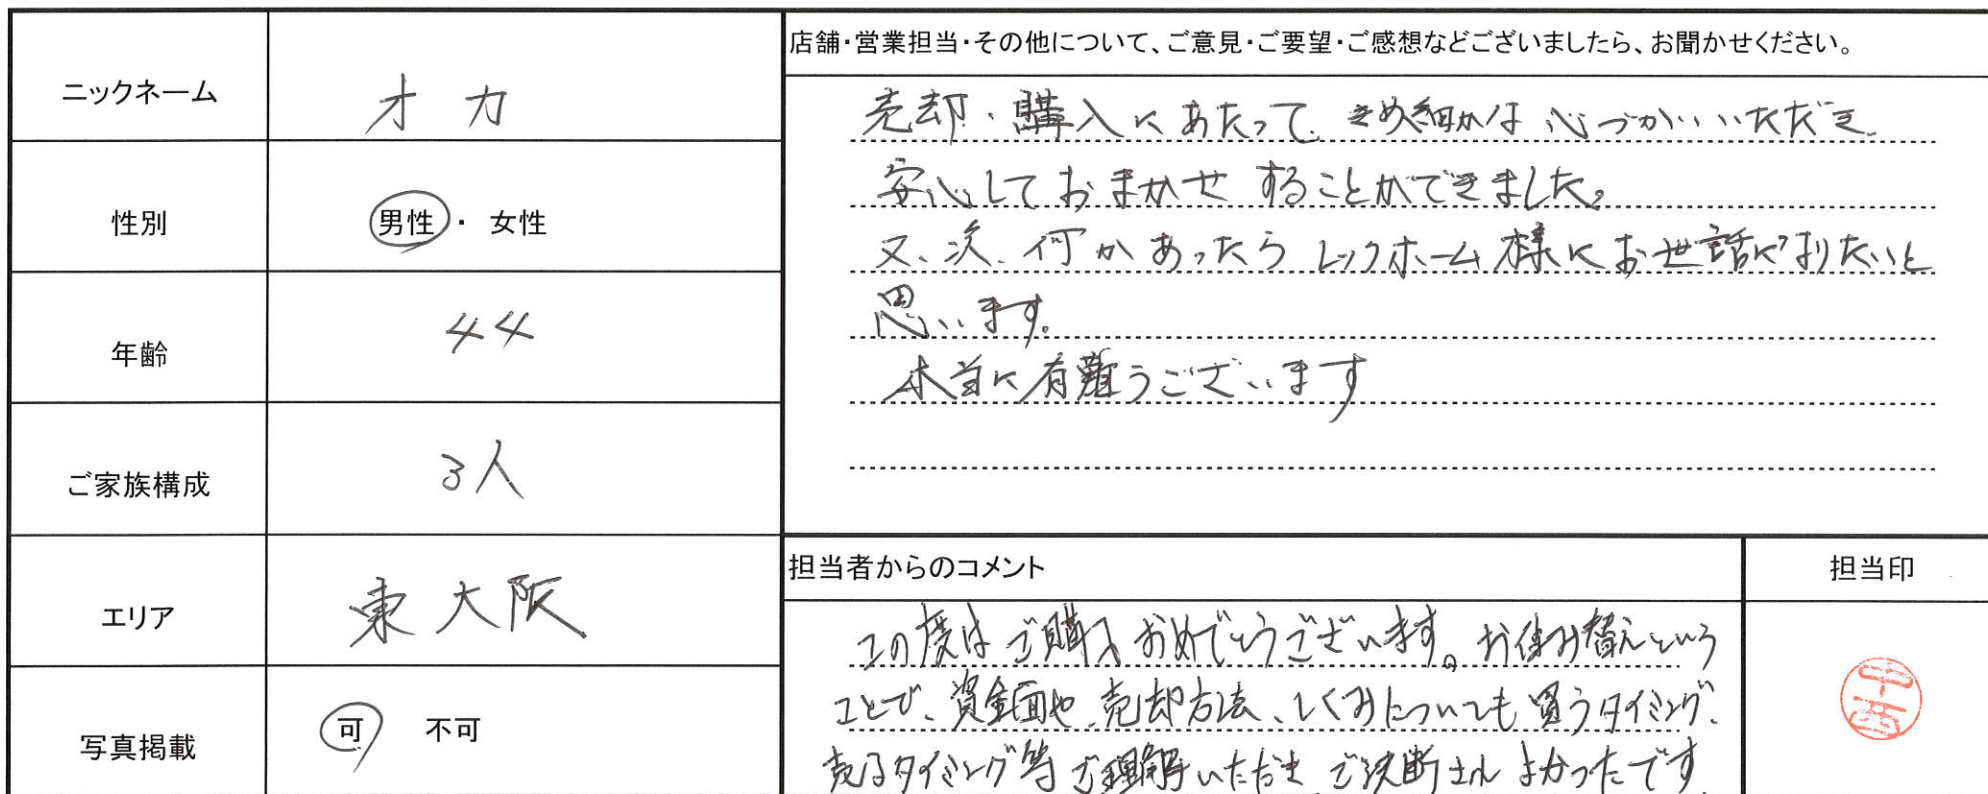 ニックネーム
オカ
性別
男性・女性
年齢
44
ご家族構成
3人
エリア
東大阪
写真掲載
可 不可
店舗・営業担当・その他について、ご意見・ご要望・ご感想などございましたら、お聞かせください。
売却・購入にあたって、きめ細かな心づかいいただき
安心しておまかせすることができました。
又、次、何かあったらレックホーム様にお世話になりたいと
思います。
本当に有難うございます
担当者からのコメント
この度はご購入おめでとうございます。お住み替えという
ことで、資金面や、売却方法、しくみについても買うタイミング、
売るタイミング等ご理解いただき、ご決断され よかったです
担当印
中西